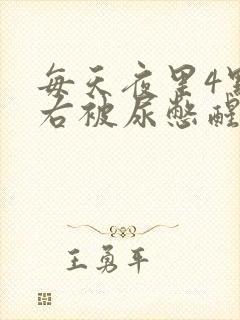 每天夜里4點
右被尿憋醒
王勇平